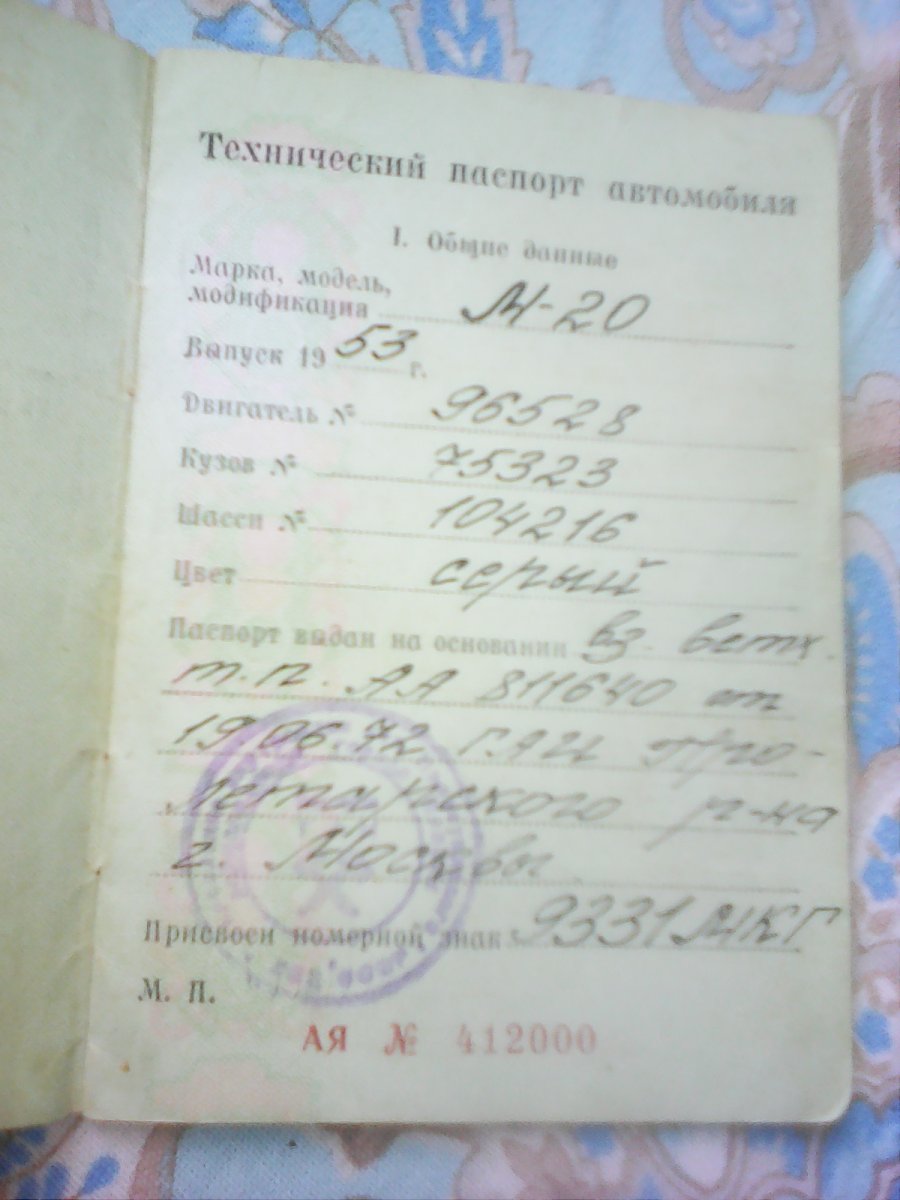 Технический паспорт автомобиля
I. Общие данные
Марка, модель,
модификация М-20
Выпуск 1953 г.
Двигатель № 96528
Кузов № 75323
Шасси № 104216
Цвет серый
Паспорт выдан на основании вз. ветх.
т.п. АА 811640 от
19.06.72 ГАИ Про-
летарского р-на
г. Москвы
Присвоен номерной знак 9331 МКГ
М. П.
АЯ № 412000